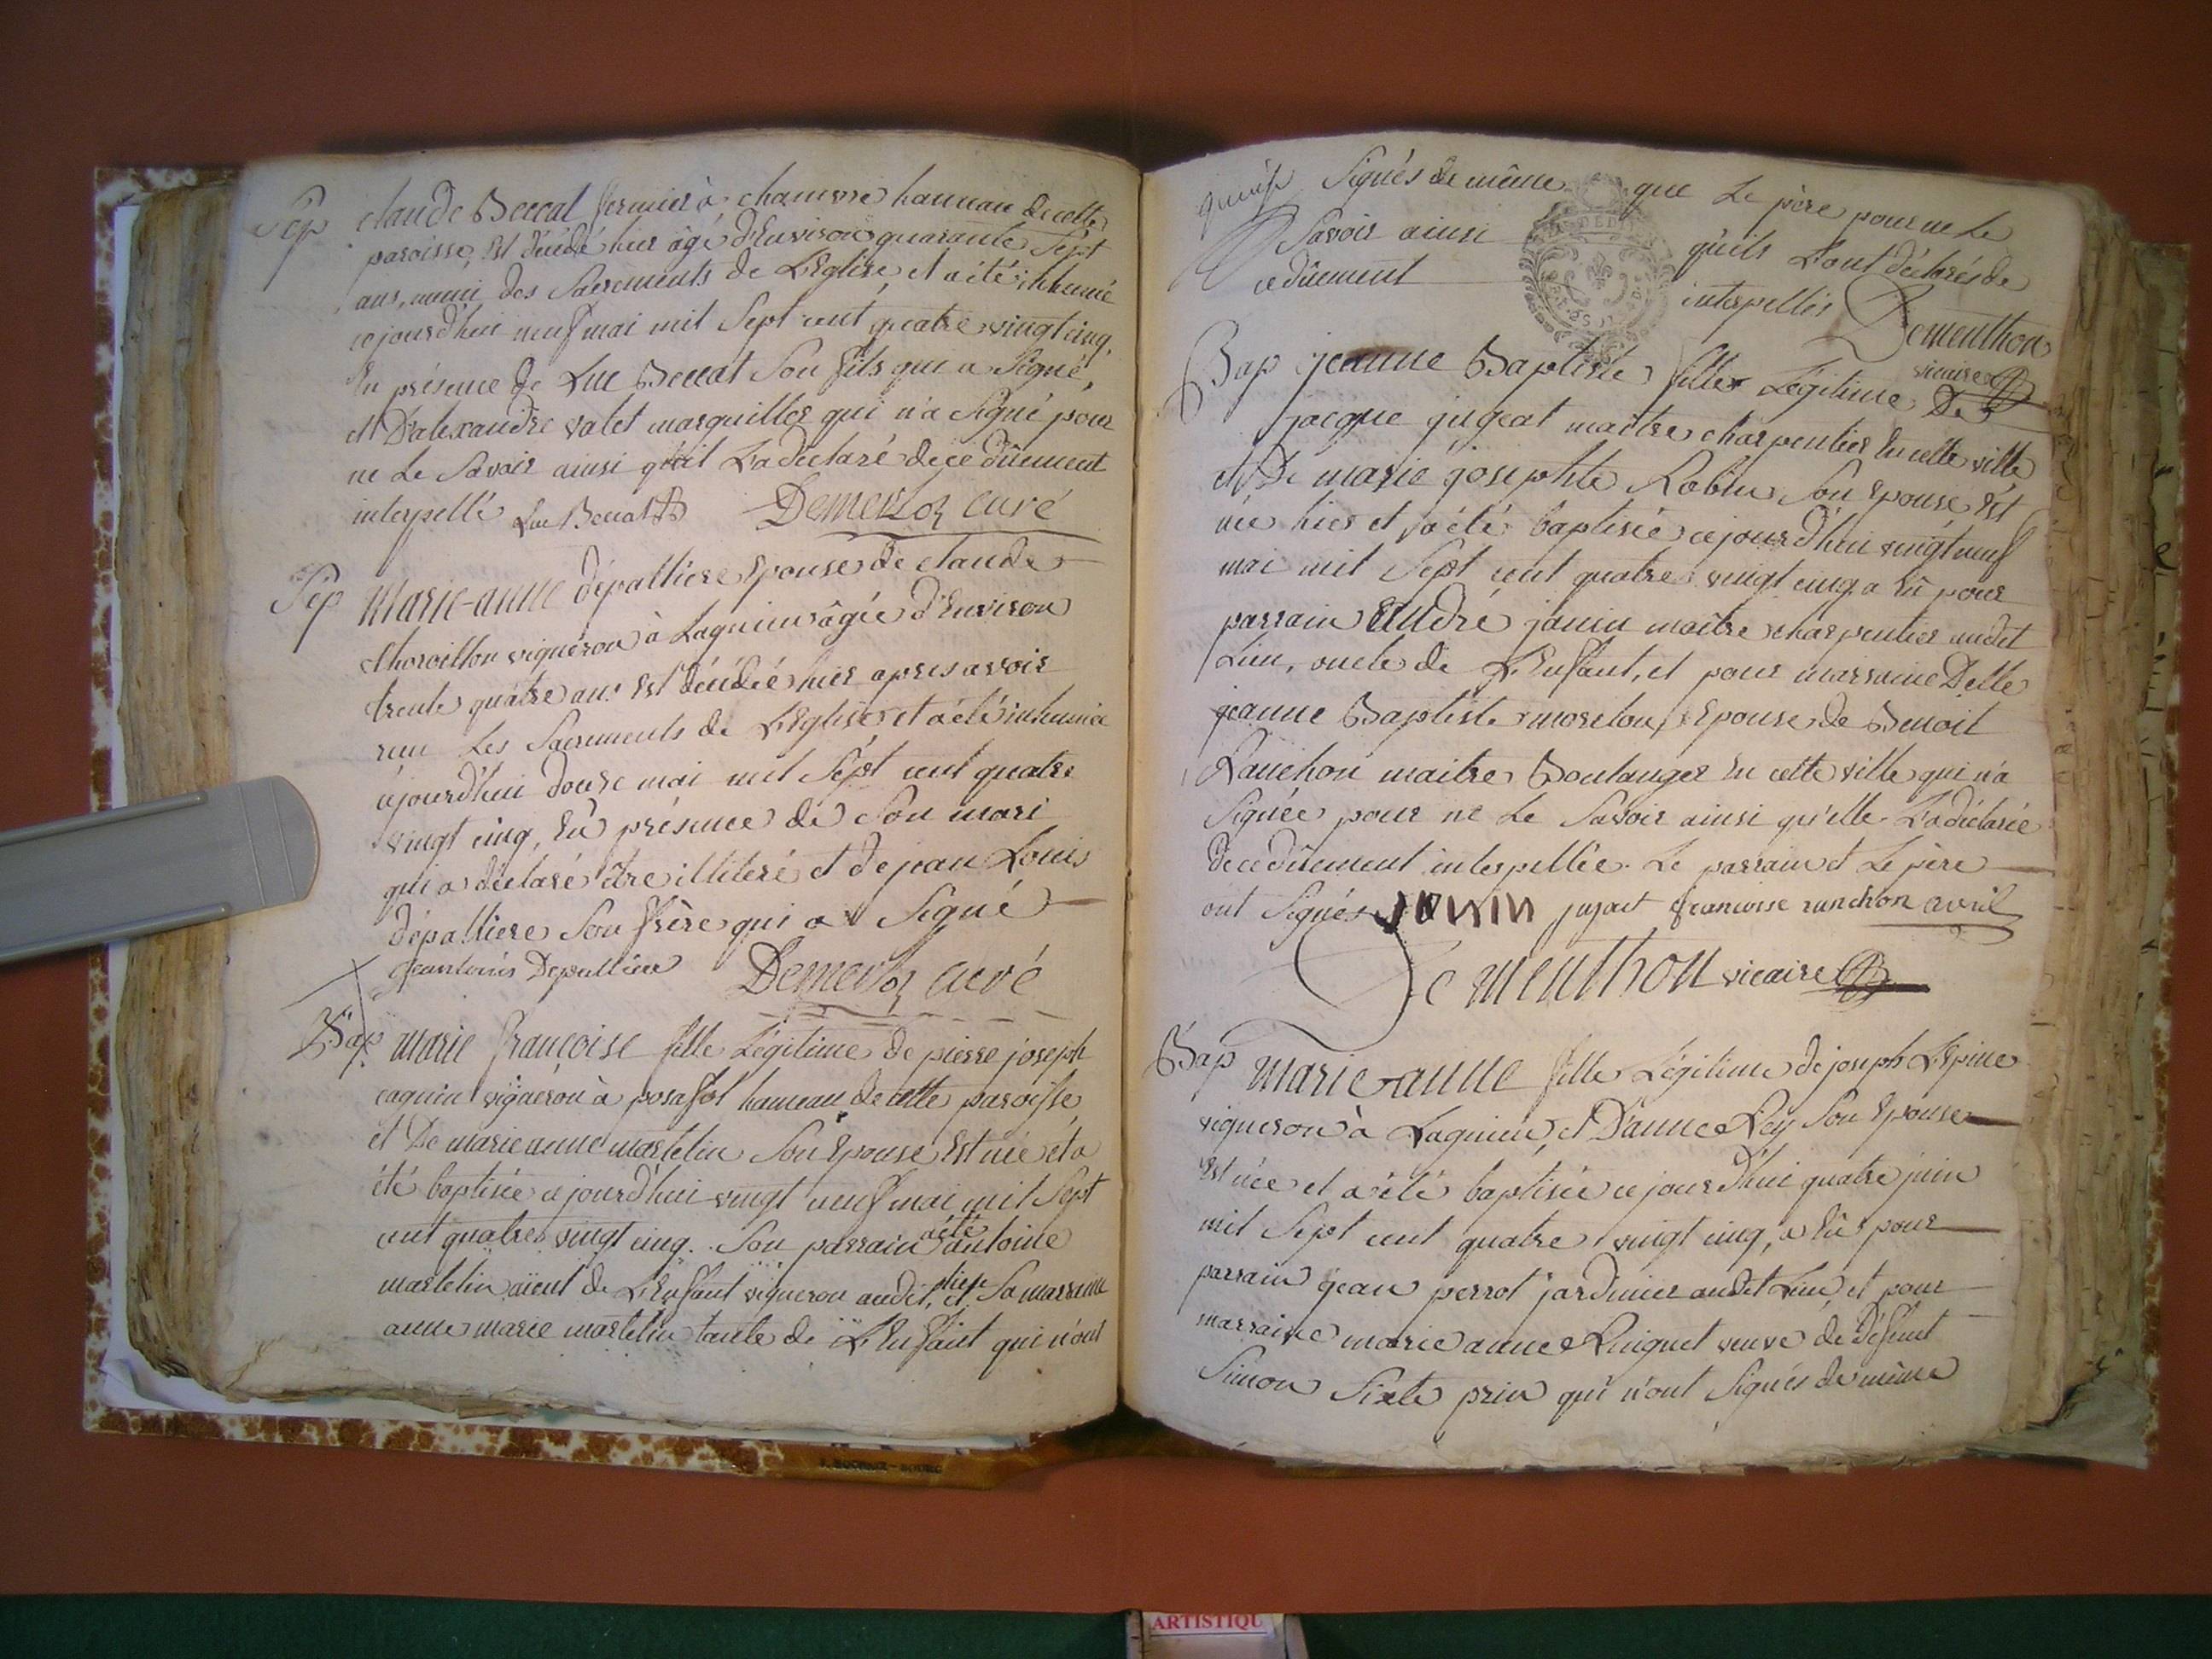 Sep claude Beccat fermier à chamvre hameau de cette
paroisse, Est décédé hier âgé d'Environ quarante Sept
ans, muni des Sacrements de L'Eglise, et a été inhumé
cejourd'hui neuf mai mil Sept cent quatre vingt cinq,
En présence de Luc Beccat Son fils qui a Signé,
et D'alexandre valet marguillier qui n'a Signé pour
ne Le Savoir ainsi qu'il L'a déclaré de ce dûement
interpellé Luc Beccat Demerloz curé
Sep Marie-anne dépalliere Epouse de claude
thoroillon vigneron à Lagnieu âgée d'Environ
trente quatre ans Est décédée hier apres avoir
reçu Les Sacrements de L'Eglise et a été inhumée
cejourd'hui douze mai mil Sept cent quatre
vingt cinq, En présence de Son mari
qui a déclaré être illiteré et de jean Louis
dépalliere Son frère qui a Signé
Jean louis Depalliere Demerloz curé
Bap Marie françoise fille Légitime de pierre joseph
caquin vigneron à posafol hameau de cette paroisse
et De marie anne martelin Son Epouse Est née et a
été baptisée cejourd'hui vingt neuf mai mil Sept
cent quatre vingt cinq. Son parrain a été antoine
martelin aieul de L'Enfant vigneron audit lieu, et Sa marraine
anne marie martelin tante de L'Enfant qui n'ont
Signés de même que Le père pour ne Le
Savoir ainsi qu'ils L'ont déclarés de
ce dûement interpellés Dementhon
vicaire
Bap jeanne Baptiste fille Légitime De
jacque jugeat maître charpentier En cette ville
et De marie josephte Robin Son Epouse Est
née hier et a été baptisée cejourd'hui vingt neuf
mai mil Sept cent quatre vingt cinq a Eû pour
parrain André janin maître charpentier audit
Lieu, oncle de L'Enfant, et pour marraine Delle
jeanne Baptiste moreton, Epouse de Benoit
Ranchon maitre Boulanger En cette ville qui n'a
Signée pour ne Le Savoir ainsi qu'elle L'a déclarée
de ce dûement interpellée. Le parrain et Le père
ont Signés janin jujat francoise ranchon avril
Dementhon vicaire
Bap Marie-anne fille Légitime de joseph L'Epine
vigneron à Lagnieu, et D'anne Rey Son Epouse
Est née et a été baptisée cejourd'hui quatre juin
mil Sept cent quatre vingt cinq, a Eû pour
parrain jean perrot jardinier audit Lieu, et pour
marraine marie anne Ruiquet veuve de défunt
Simon Sixte prin qui n'ont Signés de même
ARTISTIQU